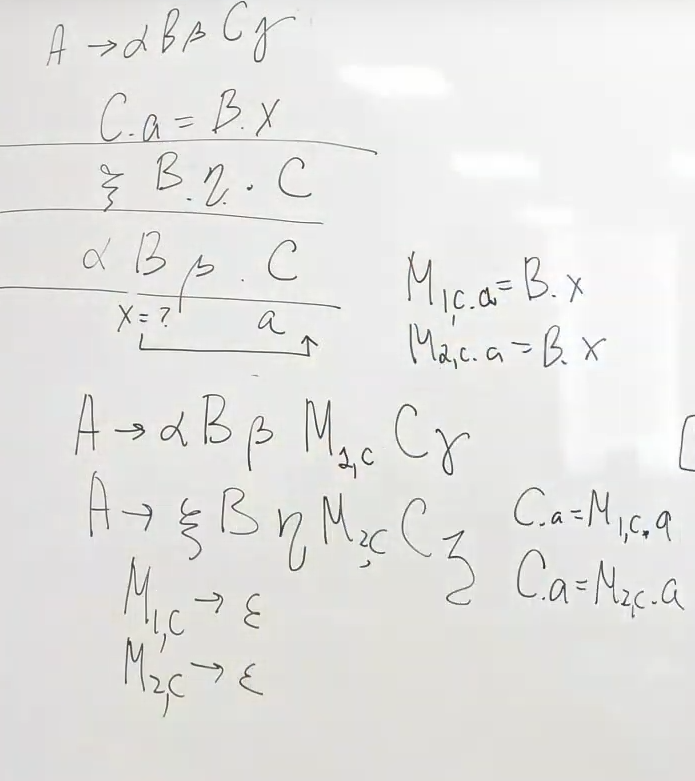 A → αBβCγ
C.a = B.x
ξ B η . C
α B β . C
x = ? a
M₁,C.a = B.x
M₂,C.a = B.x
A → αBβ M₁,C Cγ
A → ξBη M₂,C Cζ
C.a = M₁,C.a
C.a = M₂,C.a
M₁,C → ε
M₂,C → ε